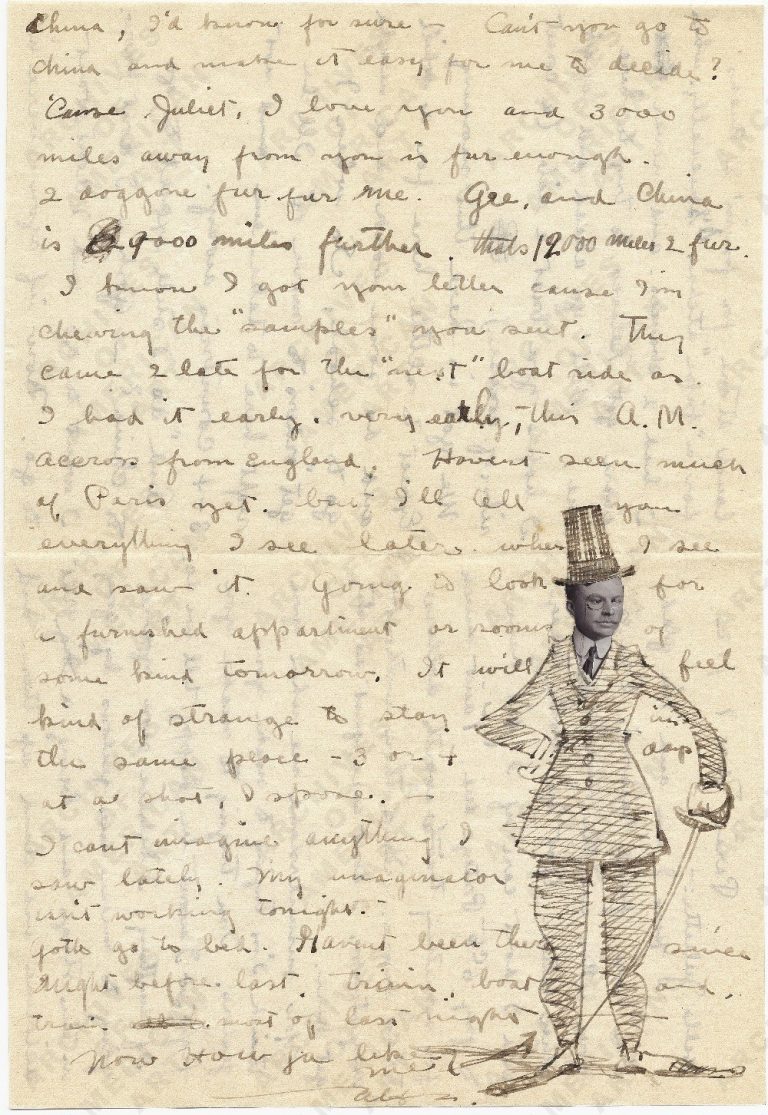 China, I'd know for sure — Can't you go to
china and make it easy for me to decide?
'Cause Juliet, I love you and 3000
miles away from you is fur enough.
2 doggone fur fur me. Gee, and China
is 9000 miles further. thats 12000 miles 2 fur.
I know I got your letter cause I'm
chewing the "samples" you sent. They
came 2 late for the "next" boat ride as
I had it early, very early, this A.M.
accross from England. Havent seen much
of Paris yet. but I'll tell you
everything I see later. when I see
and saw it. Going to look for
a furnished appartment or rooms of
some kind tomorrow. It will feel
kind of strange to stay in
the same peace - 3 or 4 days
at a shot, I spose. —
I cant imagine anything I
saw lately. My imaginator
isn't working tonight.
Gotto go to bed. Havent been there since
night before last. train, boat and,
train most of last night —
Now How ja like me?
Alex